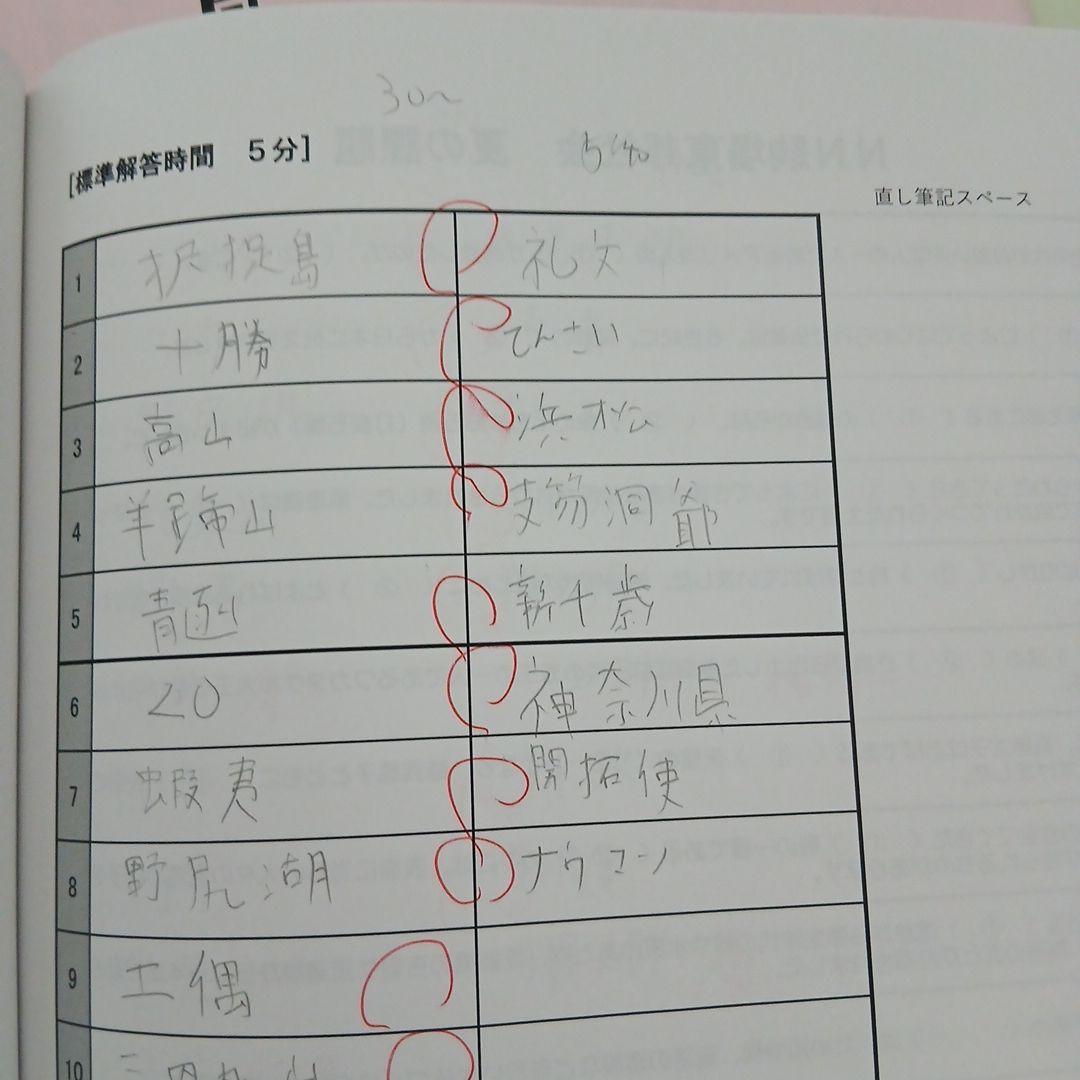 30~
[標準解答時間 5分]
直し筆記スペース
1 択捉島 礼文
2 十勝 てんさい
3 高山 浜松
4 羊蹄山 支笏洞爺
5 青函 新千歳
6 20 神奈川県
7 蝦夷 開拓使
8 野尻湖 ナウマン
9 土偶
10